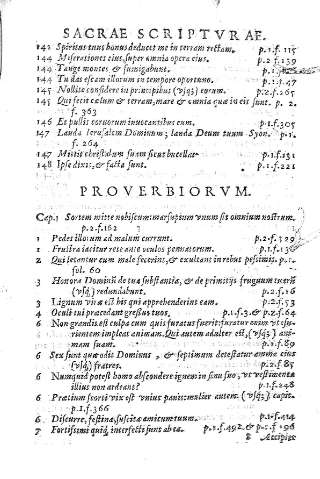 SACRAE SCRIPTVRAE.
142 Spiritus tuus bonus deducet me in terram rectam. p.1.f. 115
144 Miserationes eius super omnia opera eius. p.2.f.139
144 Tange montes & fumigabunt. p.1.f.
144 Tu das escam illorum in tempore oportuno. p.1.f.47
145 Nolite considere in principibus (vsq;) eorum. p.2.f.265
145 Qui fecit cælum & terram, mare & omnia quæ in eis sunt. p. 2.
f. 363
146 Et pullis coruorum inuocantibus eum. p.1.f.305
147 Lauda Ierusalem Dominum; lauda Deum tuum Syon. p.1.
f. 264
147 Mittit christallum suam sicut bucellas. p.1.f.131
148 Ipse dixit, & facta sunt. p.1.f.221
PROVERBIORVM.
Cap.1 Sortem mitte nobiscum: marsupium vnum sit omnium nostrum.
p.2.f.162
1 Pedes illorum ad malum currunt. p.2.f.329
1 Frustra iacitur rete ante oculos pennatorum. p.1.f.13
2 Qui lætantur cum male fecerint, & exultant in rebus pessimis. p.1.
fol. 60
3 Honora Dominũ de tua substantia, & de primitijs frugum tuarũ
(vsq;) redundabunt. p.2.f.16
3 Lignum vitæ est his qui apprehenderint eam. p.2.f.53
4 Oculi tui præcedant gressus tuos. p.1.f.3. & p.2.f.64
6 Non grandis est culpa cum quis furatus fuerit: furatur enim vt esu-
rientem impleat animam. Qui autem adulter est, (vsq;) ani-
mam suam. p.1.f.89
6 Sex sunt quæ odit Dominus, & septimum detestatur anima eius
(vsq;) fratres. p.2.f.85
6 Numquid potest homo abscondere ignem in sinu suo, vt vestimenta
illius non ardeant? p.1.f.248
6 Prætium scorti vix est vnius panis: mulier autem (vsq;) capit.
p.1.f.366
6 Discurre, festina, suscita amicum tuum. p.1.f.414
7 Fortissimi quiq; interfecti sunt ab ea. p.1.f.492. & p.1.f.196
8 Accipite